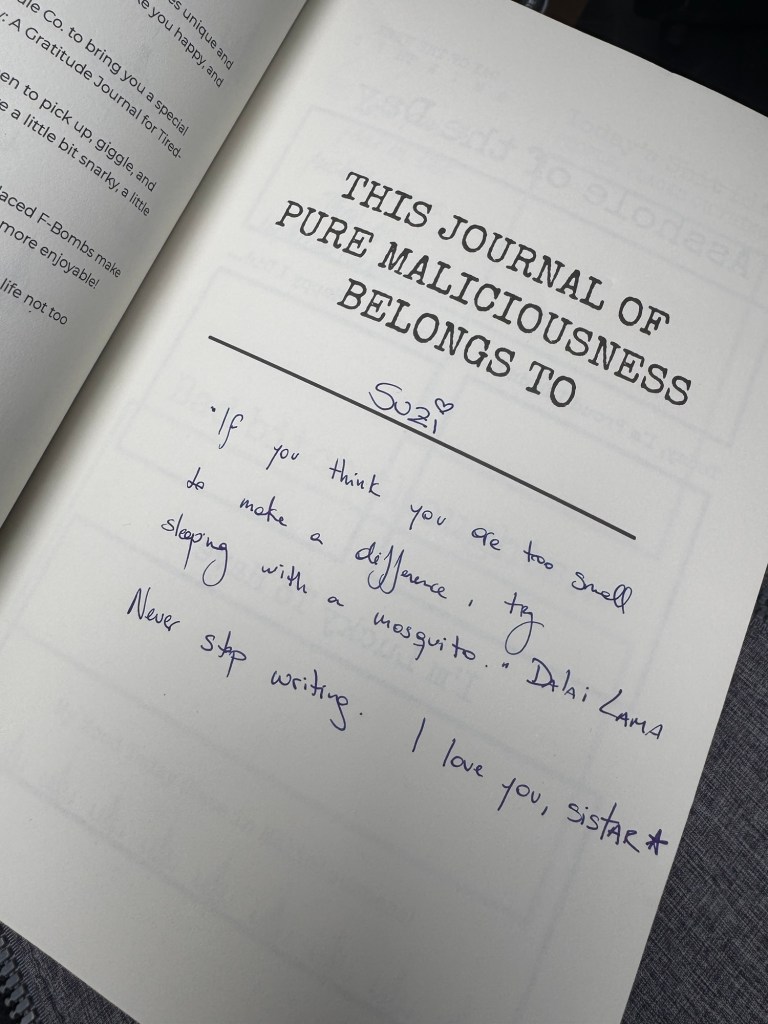 unique and
you happy, and
Co. to bring you a special
: A Gratitude Journal for Tired-
to pick up, giggle, and
a little bit snarky, a little
F-Bombs make
more enjoyable!
life not too
THIS JOURNAL OF
PURE MALICIOUSNESS
BELONGS TO
SUZi♡
"If you think you are too small
to make a difference, try
sleeping with a mosquito." DALAi LAMA
Never stop writing. I love you, siSTAR★